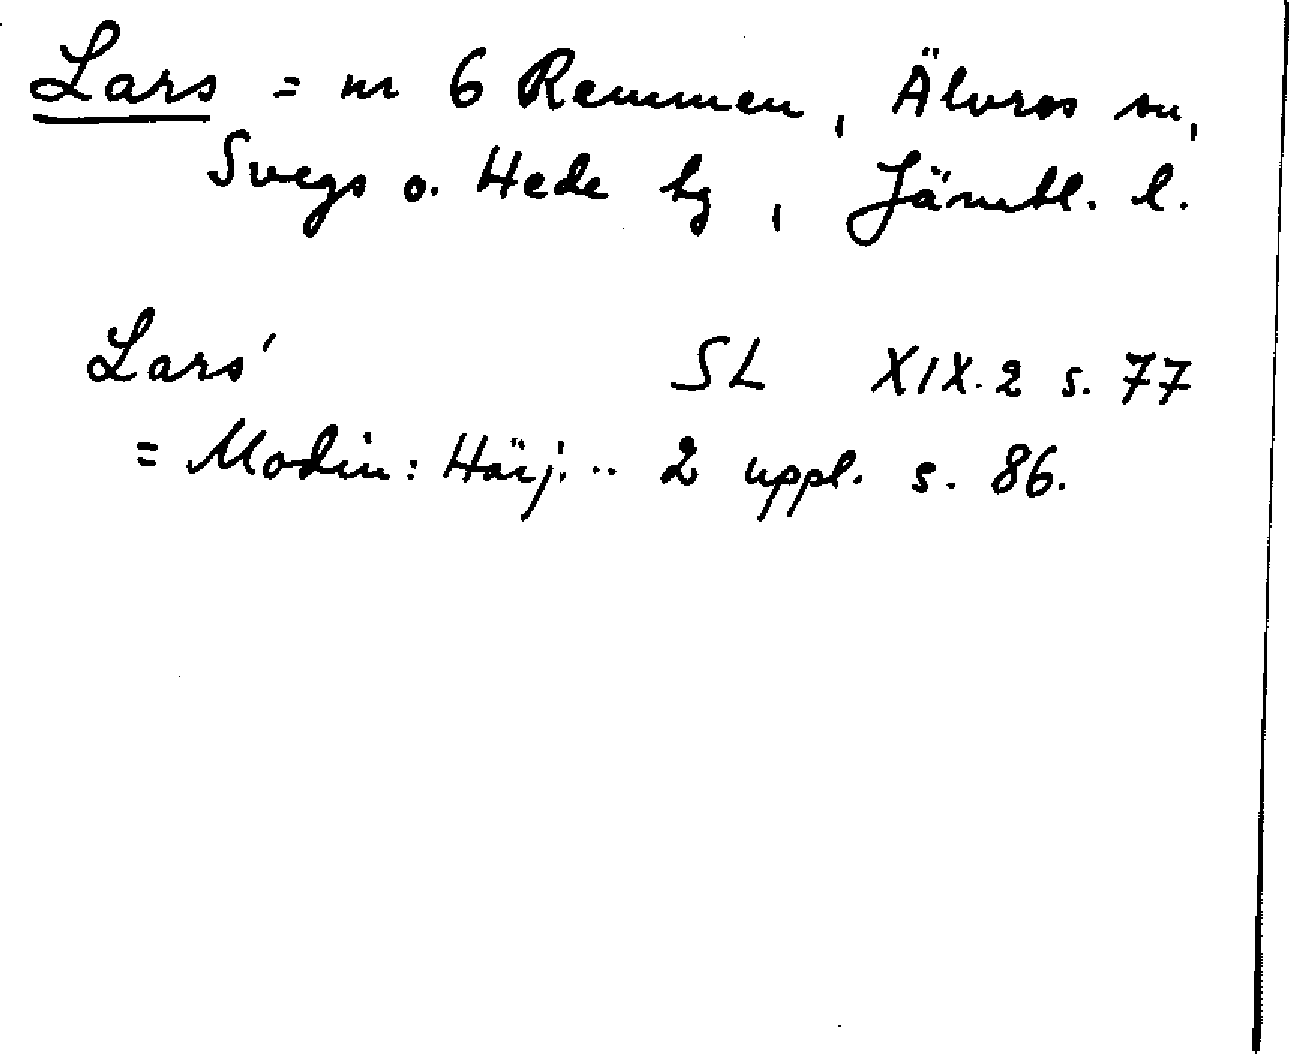 Lars = nr 6 Remmen, Älvros sn,
Svegs o. Hede hg, Jämtl. l.
Lars' SL XIX.2 s. 77
= Modin: Härj... 2 uppl. s. 86.